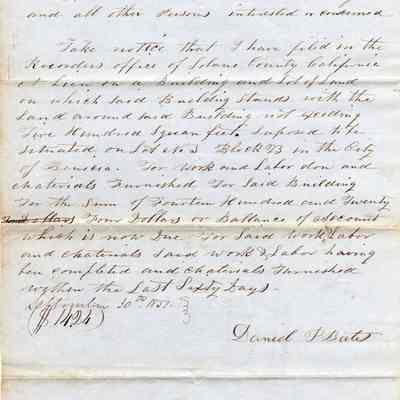 and all other Persons interested or concerned
Take notice that I have filed in the
Recorders office of Solano County California
A Lien on a Building and Lot of Land
on which said Building stands with the
Land around said Building not exceding
Five Hundred Square feet suposed to be
situated on Lot No 3 Block B in the City
of Benicia. For Work and Labor don and
Materials Furnished For Said Building
For the Sum of Fourteen Hundred and Twenty
Dollars Four Dollars or Ballance of account
which is now Due For said Work, Labor
and Materials said work & Labor having
ben completed and Materials Furnished
within the Last Sixty Days.
September 30th 1851.
($1424)
Daniel P Bates